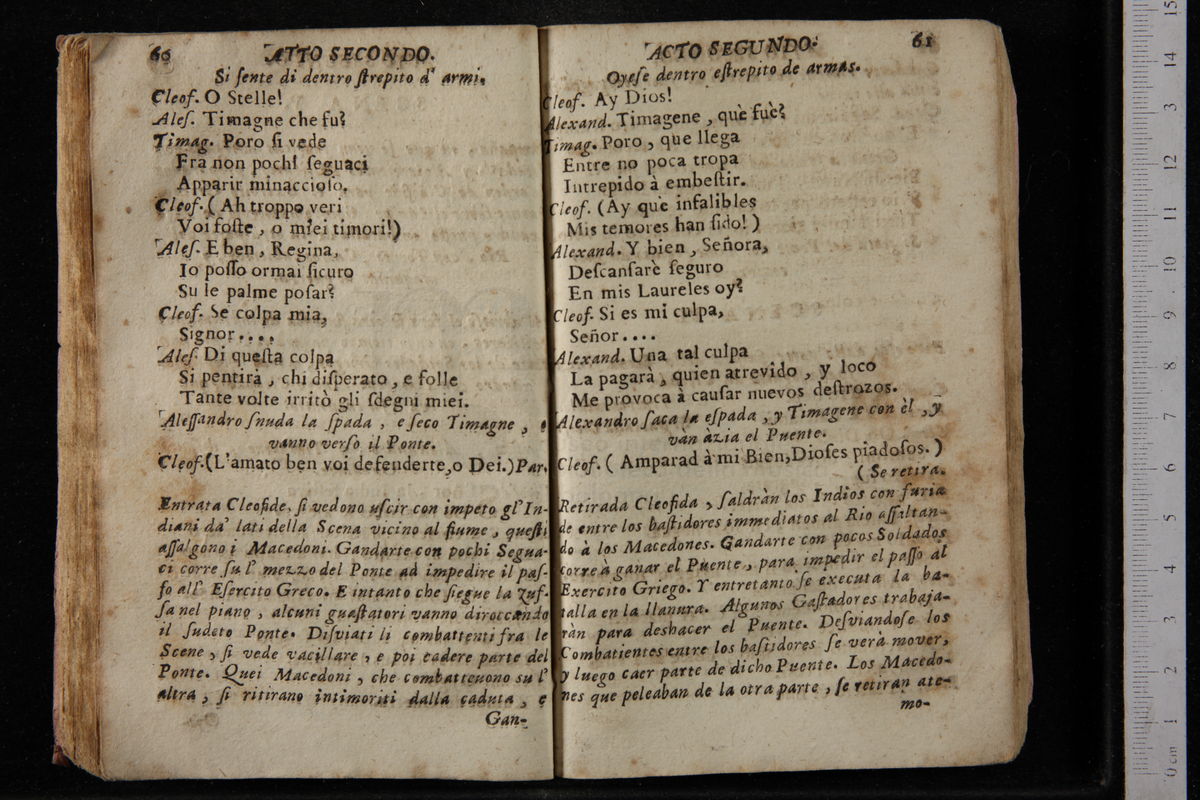 60 ATTO SECONDO.
Si ſente di dentro ſtrepito d' armi.
Cleof. O Stelle!
Aleſ. Timagne che fu?
Timag. Poro ſi vede
Fra non pochi ſeguaci
Apparir minaccioſo.
Cleof. ( Ah troppo veri
Voi foſte, o miei timori!)
Aleſ. E ben, Regina,
Io poſſo ormai ſicuro
Su le palme poſar?
Cleof. Se colpa mia,
Signor....
Aleſ. Di queſta colpa
Si pentirà, chi diſperato, e folle
Tante volte irritò gli ſdegni miei.
Aleſſandro ſnuda la ſpada, e ſeco Timagne, e
vanno verſo il Ponte.
Cleof.(L'amato ben voi defenderte,o Dei.) Par.
Entrata Cleofide, ſi vedono uſcir con impeto gl' In-
diani da' lati della Scena vicino al fiume, queſti
aſſalgono i Macedoni. Gandarte con pochi Segua-
ci corre ſu l' mezzo del Ponte ad impedire il paſ-
ſo all' Eſercito Greco. E intanto che ſiegue la zuf-
fa nel piano, alcuni guaſtatori vanno diroccando
il ſudeto Ponte. Diſviati li combattenti fra le
Scene, ſi vede vacillare, e poi cadere parte del
Ponte. Quei Macedoni, che combattevono su l'
altra, ſi ritirano intimoriti dalla caduta, e
Gan-
ACTO SEGUNDO: 61
Oyeſe dentro eſtrepito de armas.
Cleof. Ay Dios!
Alexand. Timagene, què fuè?
Timag. Poro, que llega
Entre no poca tropa
Intrepido à embeſtir.
Cleof. (Ay què infalibles
Mis temores han ſido!)
Alexand. Y bien, Señora,
Deſcanſarè ſeguro
En mis Laureles oy?
Cleof. Si es mi culpa,
Señor....
Alexand. Una tal culpa
La pagarà, quien atrevido, y loco
Me provoca à cauſar nuevos deſtrozos.
Alexandro ſaca la eſpada, y Timagene con èl, y
vàn àzia el Puente.
Cleof. ( Amparad à mi Bien, Dioſes piadoſos. )
( Se retira.
Retirada Cleofida, ſaldràn los Indios con furia
de entre los baſtidores immediatos al Rio aſſaltan-
do à los Macedones. Gandarte con pocos Soldados
corre à ganar el Puente, para impedir el paſſo al
Exercito Griego. Y entretanto ſe executa la ba-
talla en la llanura. Algunos Gaſtadores trabaja-
ràn para deshacer el Puente. Deſviandoſe los
Combatientes entre los baſtidores ſe verà mover,
y luego caer parte de dicho Puente. Los Macedo-
nes que peleaban de la otra parte, ſe retiran ate-
mo-
0 cm 1 2 3 4 5 6 7 8 9 10 11 12 13 14 15